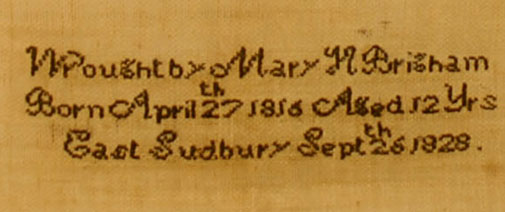 Wrought by Mary H Brigham
Born April 27th 1816 Aged 12 Yrs
East Sudbury Septth 26 1828.